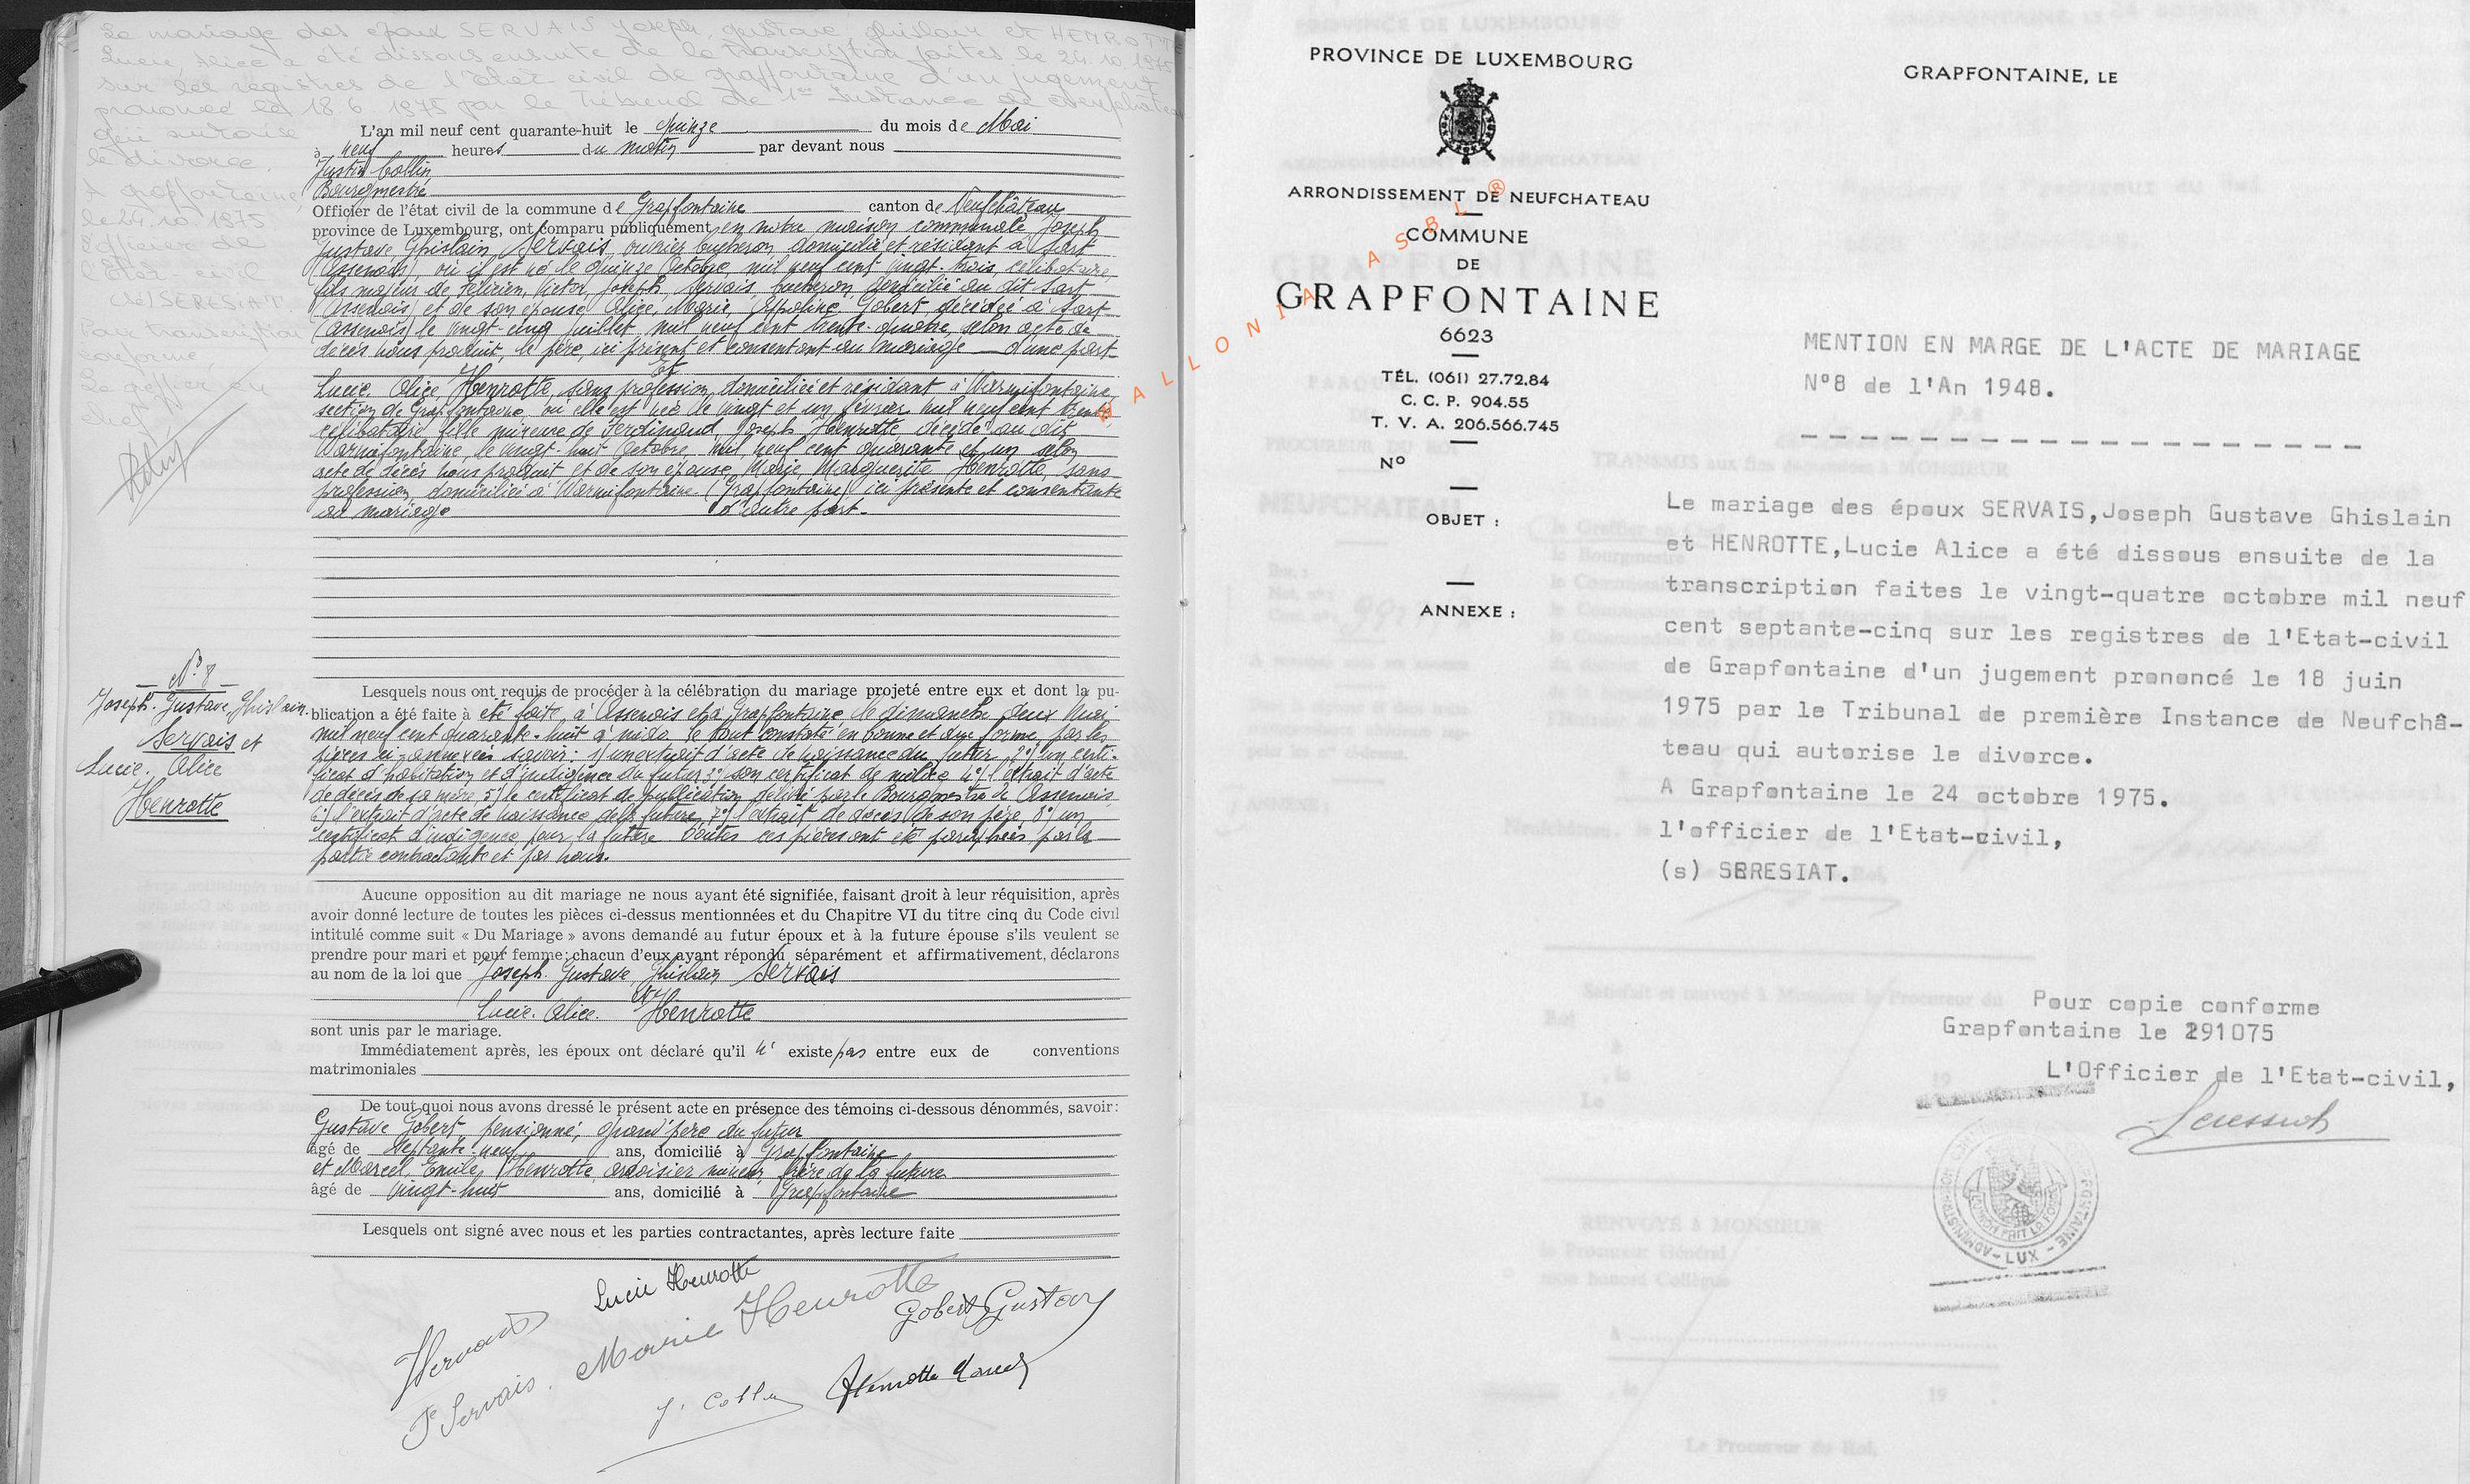 Le mariage des époux SERVAIS Joseph, gustave, ghislain et HENROTTE
Lucie, Alice a été dissous ensuite de la transcription faites le 24.10.1975
sur les registres de l'Etat-civil de grapfontaine d'un jugement
prononcé le 18 6 1975 par le Tribunal de 1ère Instance de Neufchâteau
qui autorise
le divorce.
A grapfontaine,
le 24.10.1975
l'officier de
l'Etat civil
(s) SERESIAT.
Pour transcription
conforme
Le greffier en
chef
L'an mil neuf cent quarante-huit le quinze du mois de Mai
à neuf heures du matin par devant nous
Justin Collin,
Bourgmestre
Officier de l'état civil de la commune de Grapfontaine canton de Neufchâteau
province de Luxembourg, ont comparu publiquement en notre maison communale Joseph
Gustave, Ghislain, Servais, ouvrier bûcheron, domicilié et résidant à Sart
(Assenois), où il est né le quinze Octobre, mil neuf cent vingt-trois, célibataire,
fils majeur de Félicien, Victor, Joseph, Servais, bûcheron, domicilié au dit Sart
(Assenois) et de son épouse Alice, Marie, Appoline, Gobert décédée à Sart
(Assenois) le vingt-cinq juillet, mil neuf cent trente-quatre, selon acte de
décès nous produit, le père, ici présent et consentant au mariage d'une part
Et
Lucie, Alice, Henrotte, sans profession, domiciliée et résidant à Warmifontaine,
section de Grapfontaine, où elle est née le vingt et un février mil neuf cent trente,
célibataire, fille mineure de Ferdinand, Joseph, Henrotte décédé au dit
Warmifontaine, le vingt-huit Octobre, mil neuf cent quarante et un selon
acte de décès nous produit et de son épouse Marie, Marguerite, Henrotte, sans
profession, domiciliée à Warmifontaine (Grapfontaine) ici présente et consentante
au mariage d'autre part.
N° 8
Joseph. Gustave, Ghislain.
Servais et
Lucie. Alice
Henrotte
Lesquels nous ont requis de procéder à la célébration du mariage projeté entre eux et dont la pu-
blication a été faite à été faite, à Assenois et à Grapfontaine le dimanche deux Mai
mil neuf cent quarante-huit à midi le tout constaté en bonne et due forme, par les
pièces ci-annexées savoir: 1°) un extrait d'acte de naissance du futur, 2°) un certi-
ficat d'habitation et d'indigence du futur 3°) son certificat de milice 4°) l'extrait d'acte
de décès de sa mère, 5°) le certificat de publication délivré par le Bourgmestre de Assenois
6°) l'extrait d'acte de naissance de la future, 7°) l'extrait de décès de son père, 8°) un
certificat d'indigence pour la future. Toutes ces pièces ont été paraphées par la
partie contractante et par nous.
Aucune opposition au dit mariage ne nous ayant été signifiée, faisant droit à leur réquisition, après
avoir donné lecture de toutes les pièces ci-dessus mentionnées et du Chapitre VI du titre cinq du Code civil
intitulé comme suit « Du Mariage » avons demandé au futur époux et à la future épouse s'ils veulent se
prendre pour mari et pour femme; chacun d'eux ayant répondu séparément et affirmativement, déclarons
au nom de la loi que Joseph. Gustave, Ghislain Servais
et
Lucie. Alice. Henrotte
sont unis par le mariage.
Immédiatement après, les époux ont déclaré qu'il n' existe pas entre eux de conventions
matrimoniales
De tout quoi nous avons dressé le présent acte en présence des témoins ci-dessous dénommés, savoir:
Gustave Gobert, pensionné, grand'père du futur
âgé de septante-neuf ans, domicilié à Grapfontaine
et Marcel, Emile, Henrotte, ardoisier mineur, frère de la future
âgé de vingt-huit ans, domicilié à Grapfontaine
Lesquels ont signé avec nous et les parties contractantes, après lecture faite
Lucie Henrotte
JServais
Marie Henrotte
Gobert Gustave
F Servais.
J. Collin
Henrotte Marcel
WALLONIA ASBL ®
PROVINCE DE LUXEMBOURG
ARRONDISSEMENT DE NEUFCHATEAU
COMMUNE
DE
GRAPFONTAINE
6623
TÉL. (061) 27.72.84
C. C. P. 904.55
T. V. A. 206.566.745
N°
OBJET :
ANNEXE :
GRAPFONTAINE, LE
MENTION EN MARGE DE L'ACTE DE MARIAGE
N°8 de l'An 1948.
Le mariage des époux SERVAIS,Joseph Gustave Ghislain
et HENROTTE,Lucie Alice a été dissous ensuite de la
transcription faites le vingt-quatre octobre mil neuf
cent septante-cinq sur les registres de l'Etat-civil
de Grapfontaine d'un jugement prononcé le 18 juin
1975 par le Tribunal de première Instance de Neufchâ-
teau qui autorise le divorce.
A Grapfontaine le 24 octobre 1975.
l'officier de l'Etat-civil,
(s) SERESIAT.
Pour copie conforme
Grapfontaine le 291075
L'Officier de l'Etat-civil,
Seressiat
L'UNION FAIT LA FORCE
- LUX -